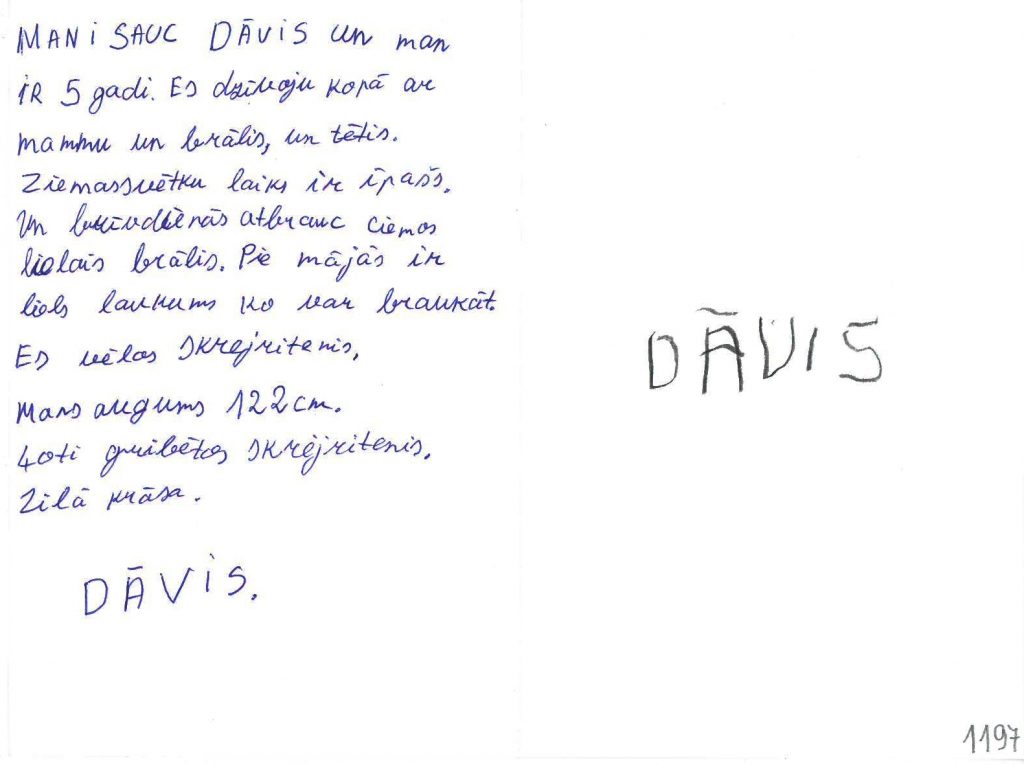 MANi SAUC DĀViS un man
iR 5 gadi. Es dzīvoju kopā ar
mammu un brālis, un tētis.
Ziemassvētku laiks ir īpašs.
Un brīvdienās atbrauc ciemos
lielais brālis. Pie mājās ir
liels laukums ko var braukāt.
Es vēlos skrejritenis,
Mans augums 122 cm.
Ļoti gribētos skrējritenis.
Zilā krāsa.
DĀViS.
DĀVIS
1197